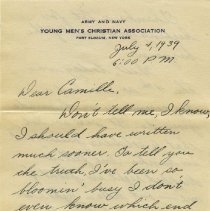 ARMY AND NAVY
YOUNG MEN'S CHRISTIAN ASSOCIATION
FORT SLOCUM, NEW YORK
July 4, 1939
6:00 P.M.
Dear Camille,
Don't tell me, I know,
I should have written
much sooner. To tell you
the truth, I've been so
bloomin' busy I don't
even know which end